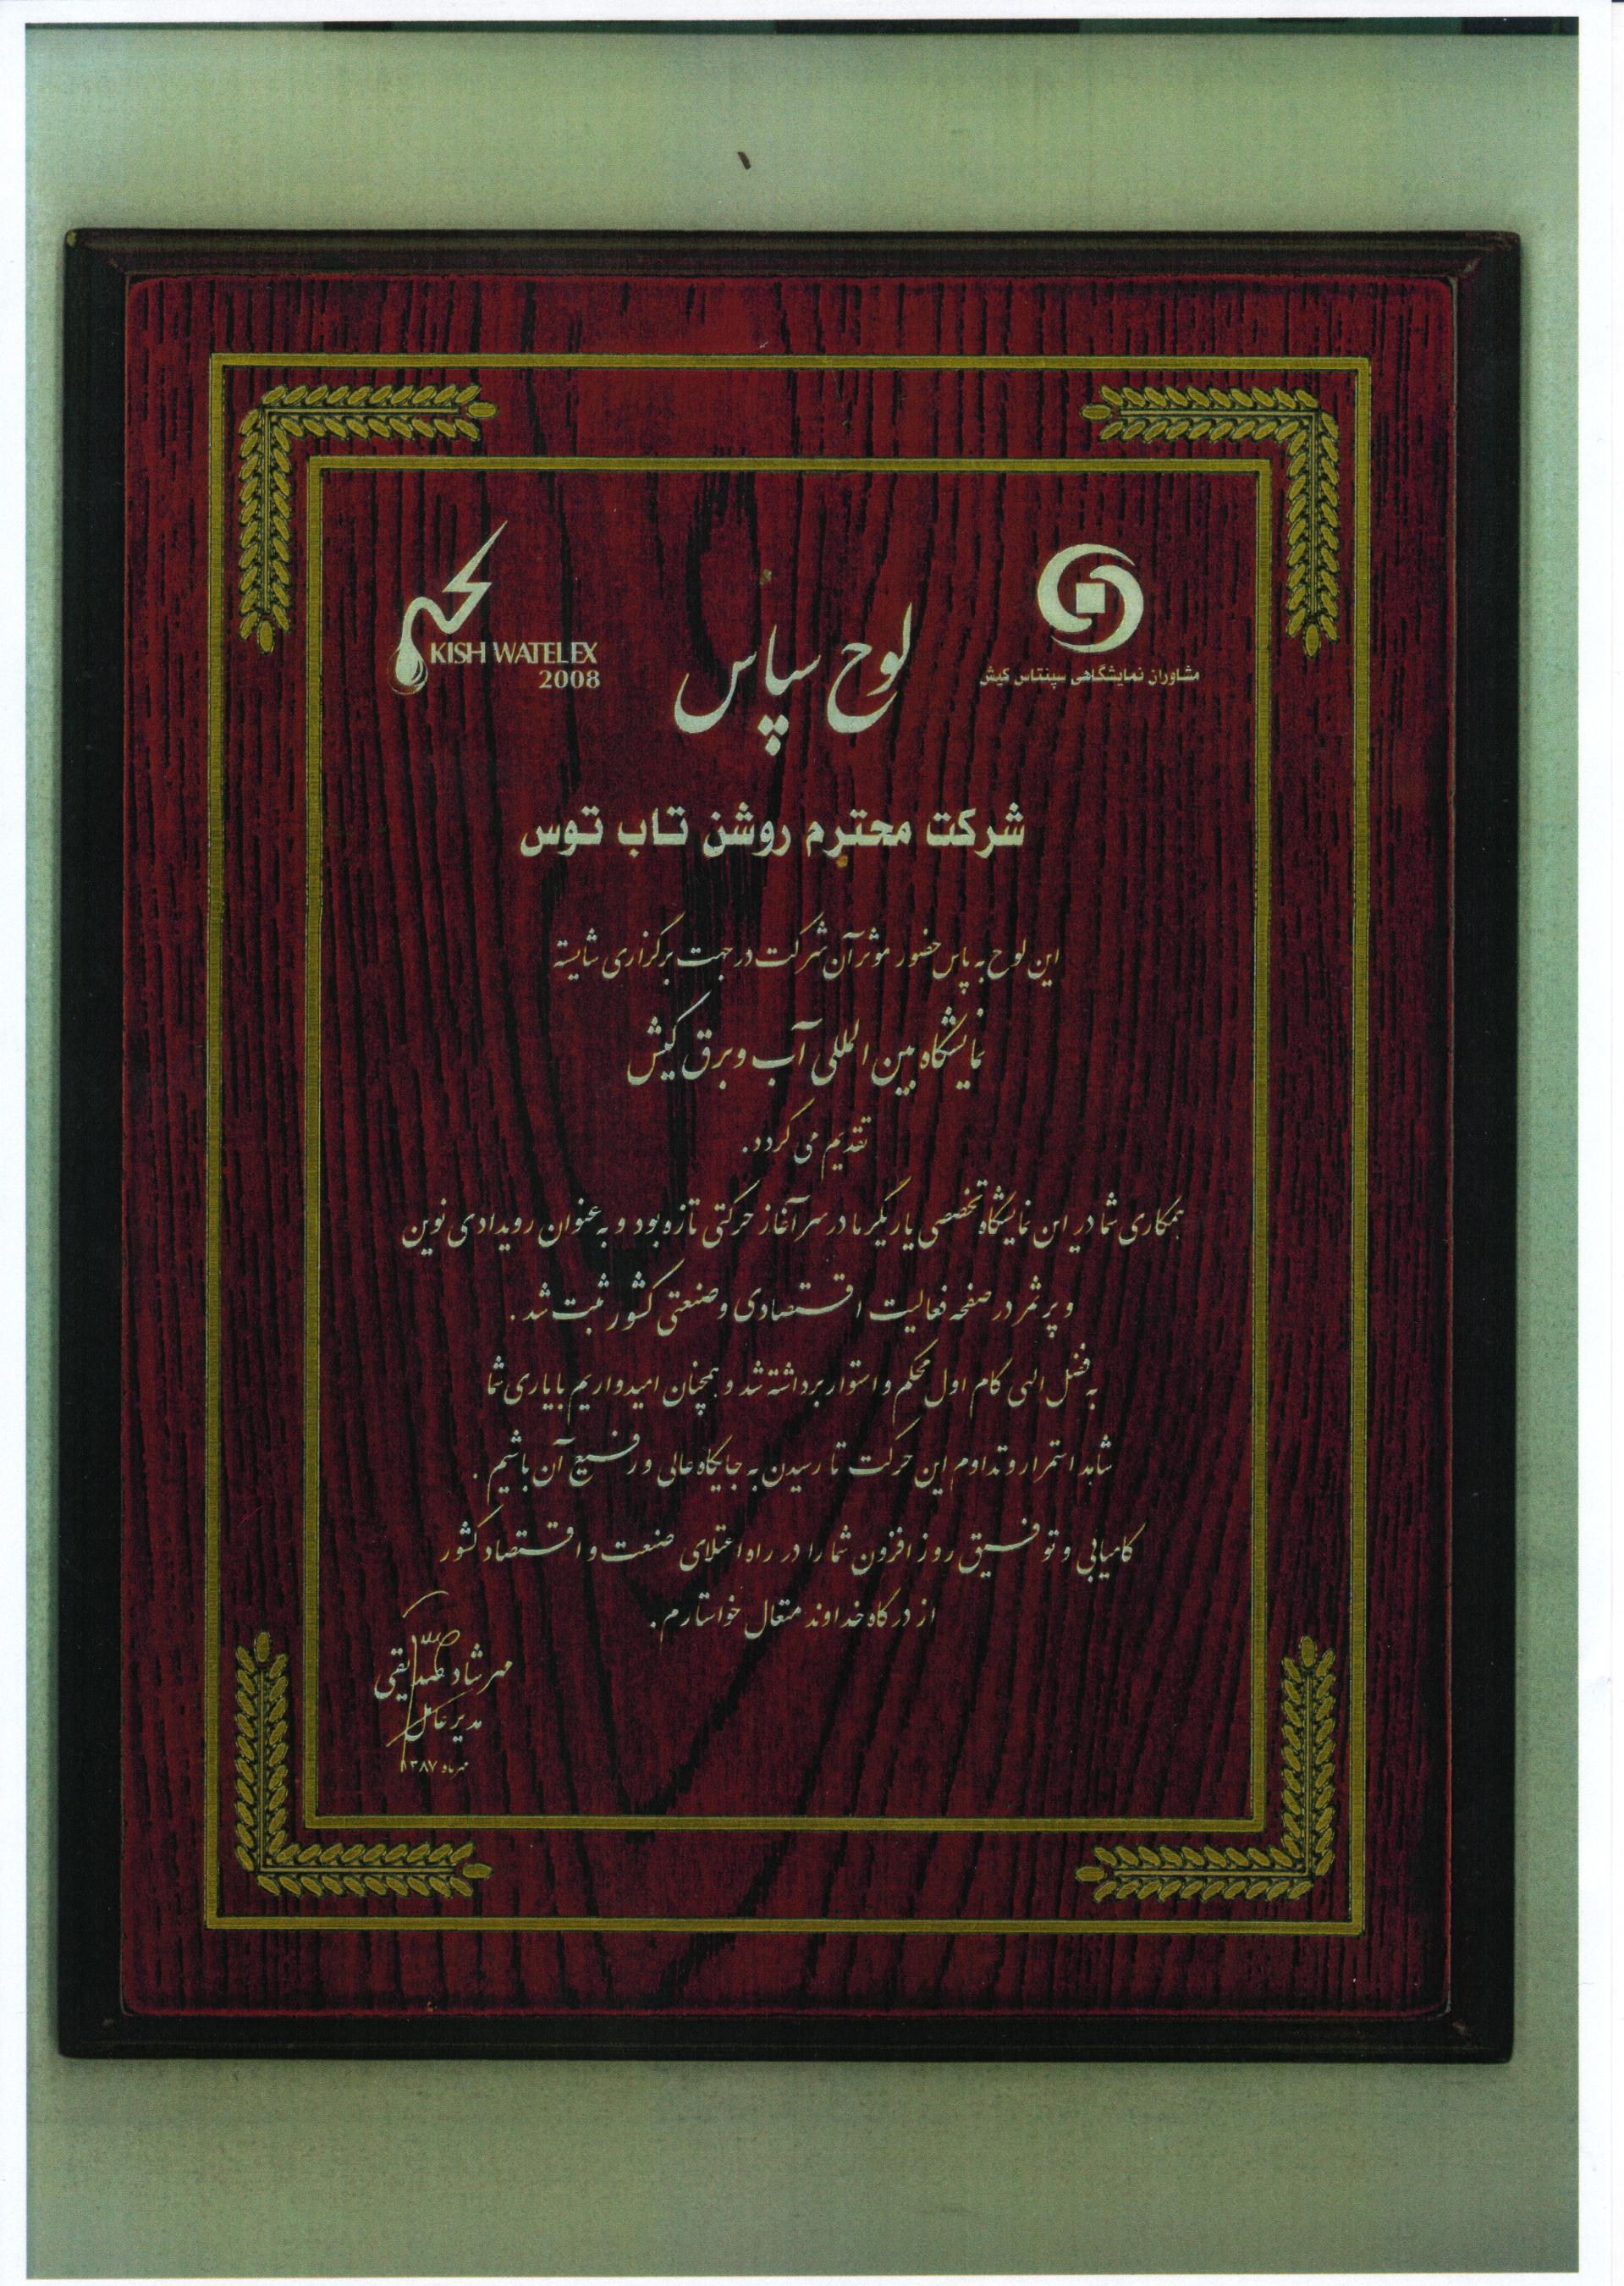 مشاوران نمایشگاهی سپنتاس کیش
KISH WATELEX
2008
لوح سپاس
شرکت محترم روشن تاب توس
این لوح به پاس حضور موثر آن شرکت در جهت برگزاری شایسته
نمایشگاه بین المللی آب و برق کیش
تقدیم می گردد.
همکاری شما در این نمایشگاه تخصصی یاریگر ما در سرآغاز حرکتی تازه بود و به عنوان رویدادی نوین
و پر ثمر در صفحه فعالیت اقتصادی و صنعتی کشور ثبت شد.
به فضل الهی گام اول محکم و استوار برداشته شد و همچنان امیدواریم با یاری شما
شاهد استمرار و تداوم این حرکت تا رسیدن به جایگاه عالی و رفیع آن باشیم.
کامیابی و توفیق روز افزون شما را در راه اعتلای صنعت و اقتصاد کشور
از درگاه خداوند متعال خواستارم.
مهرشاد صدیقی
مدیر عامل
مهرماه ۱۳۸۷